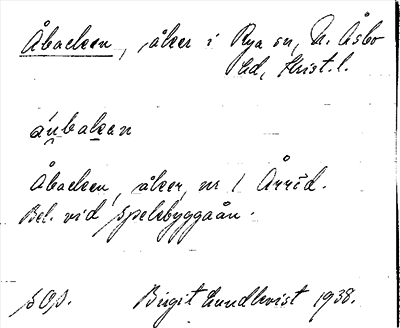 Åbacken, åker i Rya sn, N. Åsbo
hd, Krist. l.
áu̯bakan
Åbacken, åker, nr 1 Årröd.
Bel. vid Spelebyggaån.
s0s.
Birgit Lundkvist 1938.